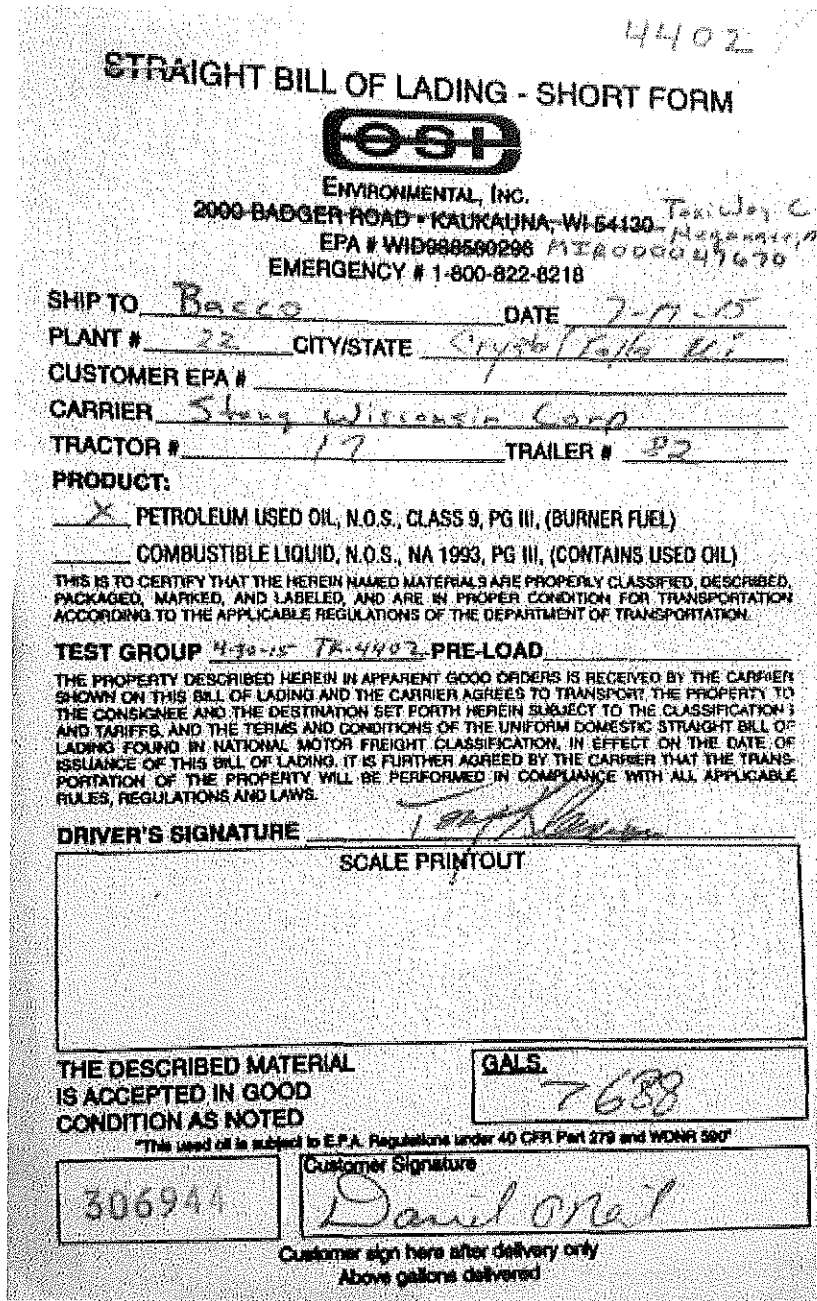 4402
STRAIGHT BILL OF LADING - SHORT FORM
OSI
ENVIRONMENTAL, INC.
2000 BADGER ROAD • KAUKAUNA, WI 54130
EPA # WID988580298 MIR000047670
EMERGENCY # 1-800-822-8218
SHIP TO Bacco DATE 7-17-15
PLANT # 22 CITY/STATE Crystal Falls Mi
CUSTOMER EPA #
CARRIER Wisconsin Corp
TRACTOR # 17 TRAILER #
PRODUCT:
X PETROLEUM USED OIL, N.O.S., CLASS 9, PG III, (BURNER FUEL)
COMBUSTIBLE LIQUID, N.O.S., NA 1993, PG III, (CONTAINS USED OIL)
THIS IS TO CERTIFY THAT THE HEREIN NAMED MATERIALS ARE PROPERLY CLASSIFIED, DESCRIBED,
PACKAGED, MARKED, AND LABELED, AND ARE IN PROPER CONDITION FOR TRANSPORTATION
ACCORDING TO THE APPLICABLE REGULATIONS OF THE DEPARTMENT OF TRANSPORTATION.
TEST GROUP 4-30-15 TK-4402 PRE-LOAD
THE PROPERTY DESCRIBED HEREIN IN APPARENT GOOD ORDERS IS RECEIVED BY THE CARRIER
SHOWN ON THIS BILL OF LADING AND THE CARRIER AGREES TO TRANSPORT THE PROPERTY TO
THE CONSIGNEE AND THE DESTINATION SET FORTH HEREIN SUBJECT TO THE CLASSIFICATIONS
AND TARIFFS, AND THE TERMS AND CONDITIONS OF THE UNIFORM DOMESTIC STRAIGHT BILL OF
LADING FOUND IN NATIONAL MOTOR FREIGHT CLASSIFICATION, IN EFFECT ON THE DATE OF
ISSUANCE OF THIS BILL OF LADING. IT IS FURTHER AGREED BY THE CARRIER THAT THE TRANS-
PORTATION OF THE PROPERTY WILL BE PERFORMED IN COMPLIANCE WITH ALL APPLICABLE
RULES, REGULATIONS AND LAWS.
DRIVER'S SIGNATURE
SCALE PRINTOUT
THE DESCRIBED MATERIAL
IS ACCEPTED IN GOOD
CONDITION AS NOTED
GALS.
7688
"This used oil is subject to E.P.A. Regulations under 40 CFR Part 279 and WDNR 590"
306944
Customer Signature
Daniel ONeil
Customer sign here after delivery only
Above gallons delivered